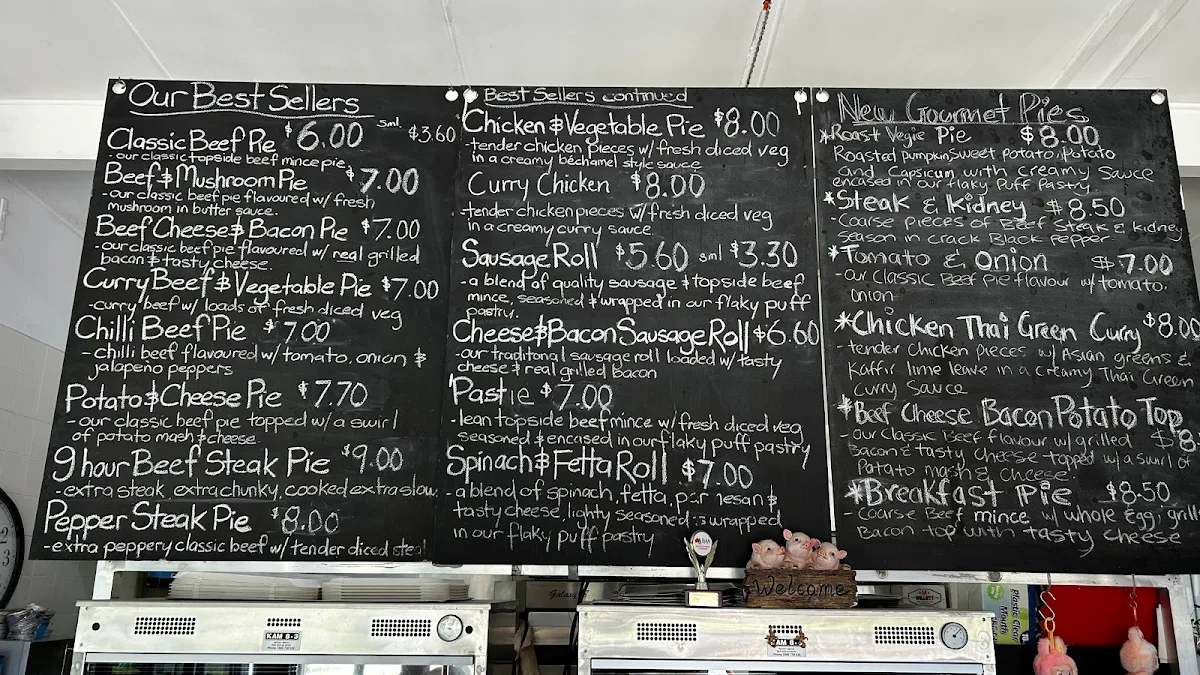 Our Best Sellers
Classic Beef Pie $6.00 sml. $3.60
- our classic topside beef mince pie
Beef & Mushroom Pie $7.00
- our classic beef pie flavoured w/ fresh
mushroom in butter sauce.
Beef Cheese & Bacon Pie $7.00
- our classic beef pie flavoured w/ real grilled
bacon & tasty cheese.
Curry Beef & Vegetable Pie $7.00
- curry beef w/ loads of fresh diced veg
Chilli Beef Pie $7.00
- chilli beef flavoured w/ tomato, onion &
jalapeno peppers
Potato & Cheese Pie $7.70
- our classic beef pie topped w/ a swirl
of potato mash & cheese.
9 hour Beef Steak Pie $9.00
- extra steak, extra chunky, cooked extra slow.
Pepper Steak Pie $8.00
- extra peppery classic beef w/ tender diced steak
Best Sellers continued
Chicken & Vegetable Pie $8.00
- tender chicken pieces w/ fresh diced veg
in a creamy béchamel style sauce
Curry Chicken $8.00
- tender chicken pieces w/ fresh diced veg
in a creamy curry sauce
Sausage Roll $5.60 sml $3.30
- a blend of quality sausage & topside beef
mince, seasoned & wrapped in our flaky puff
pastry.
Cheese & Bacon Sausage Roll $6.60
- our traditional sausage roll loaded w/ tasty
cheese & real grilled bacon
Pastie $7.00
- lean topside beef mince w/ fresh diced veg
seasoned & encased in our flaky puff pastry
Spinach & Fetta Roll $7.00
- a blend of spinach, fetta, parmesan &
tasty cheese, lighty seasoned & wrapped
in our flaky puff pastry
New Gourmet Pies
*Roast Vegie Pie $8.00
Roasted pumpkin sweet potato, potato
and capsicum with creamy sauce
encased in our flaky puff pastry.
*Steak & Kidney $8.50
- Coarse pieces of Beef Steak & kidney
season in crack Black Pepper
*Tomato & Onion $7.00
- our Classic Beef Pie flavour w/ tomato.
onion
*Chicken Thai Green Curry $8.00
- tender chicken pieces w/ Asian greens &
Kaffir lime leave in a creamy Thai Green
curry sauce
*Beef Cheese Bacon Potato Top
- our Classic Beef flavour w/ grilled $8
Bacon & tasty cheese topped w/ a swirl of
Potato mash & cheese.
*Breakfast Pie $8.50
- Coarse Beef mince w/ whole egg, grill
Bacon top with tasty cheese
Welcome
KAM 8-3
Galaxy
Plastic Clear
Mouth